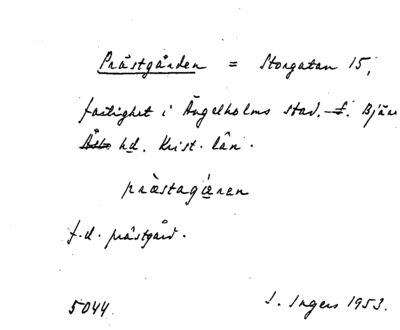 Prästgården = Storgatan 15,
fastighet i Ängelholms stad. f. Bjäre
Åsbo hd. Krist. län.
prästagɩ́eren
f.d. prästgård.
5044. I. Ingers 1953.